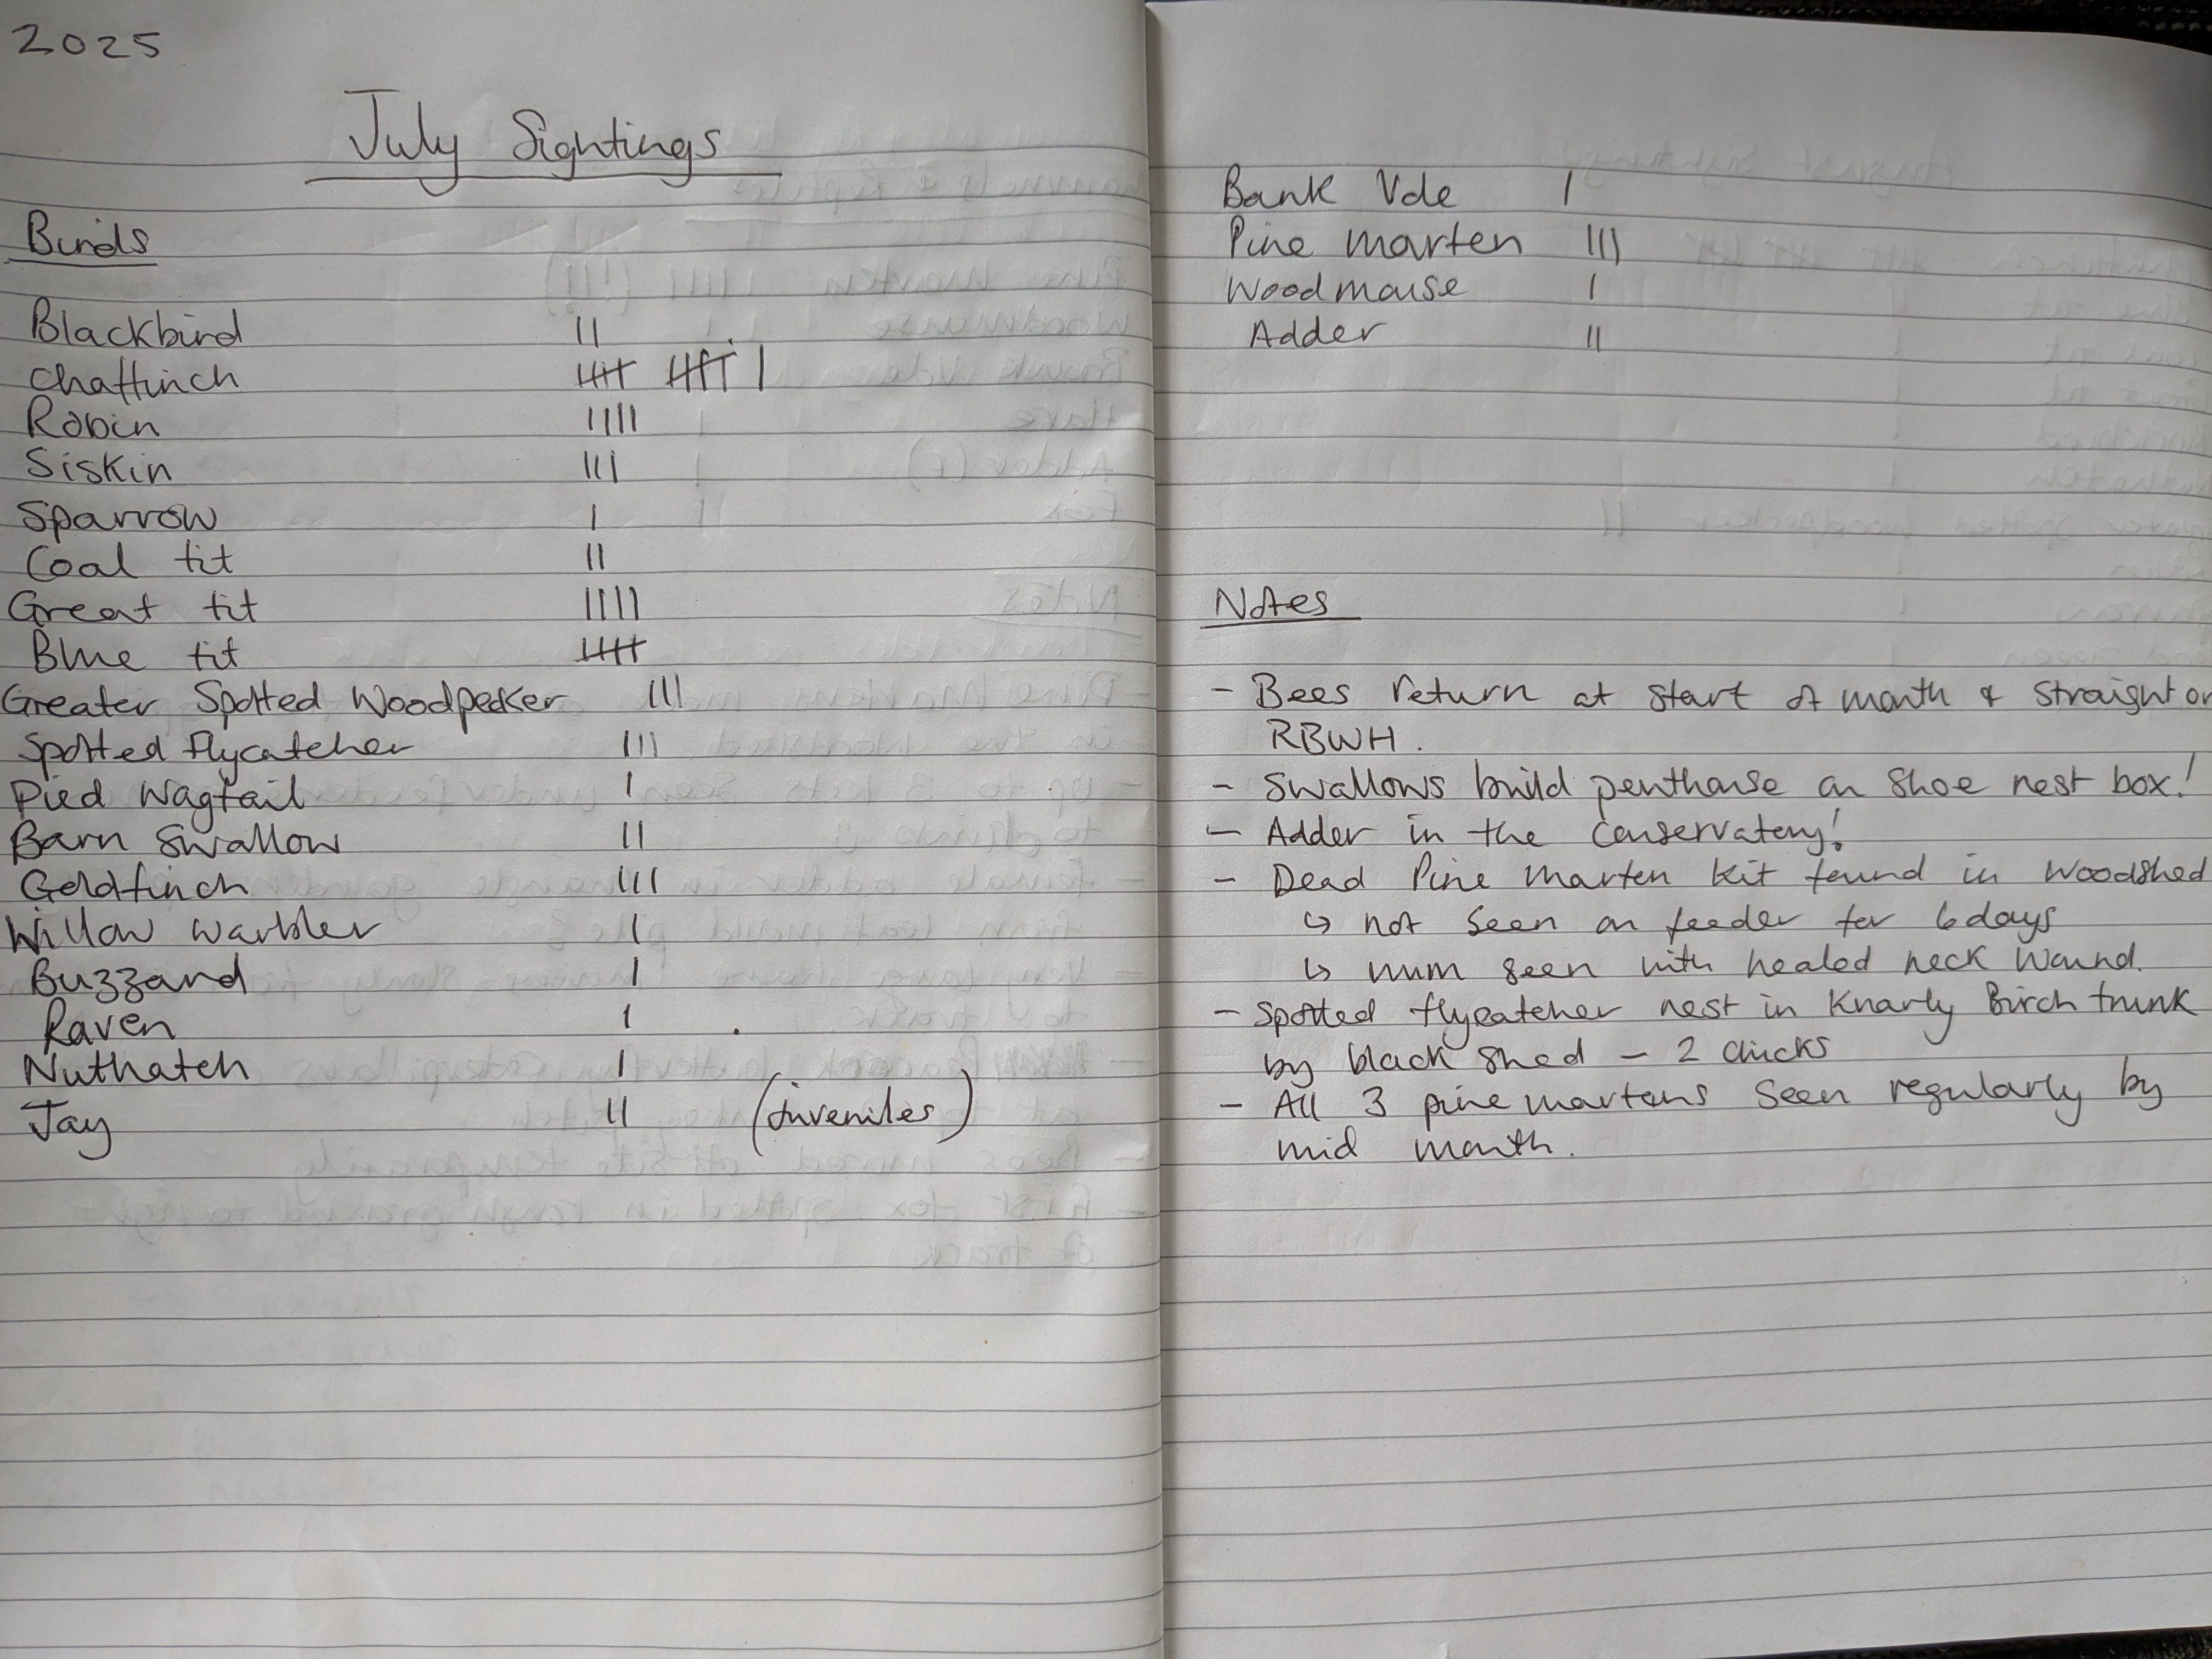 2025
July Sightings
Birds
Blackbird II
Chaffinch HHT HHT I
Robin IIII
Siskin III
Sparrow I
Coal tit II
Great tit IIII
Blue tit HHT
Greater Spotted Woodpecker III
Spotted flycatcher III
Pied Wagtail I
Barn Swallow II
Goldfinch III
Willow Warbler I
Buzzard I
Raven I
Nuthatch I
Jay II (juveniles)
Bank Vole I
Pine marten III
Woodmouse I
Adder II
Notes
- Bees return at start of month & straight on
RBWH.
- Swallows build penthouse on shoe nest box!
- Adder in the conservatory!
- Dead Pine Marten kit found in Woodshed
↳ not seen on feeder for 6 days
↳ mum seen with healed neck wound.
- Spotted flycatcher nest in Knarly Birch trunk
by black shed - 2 chicks
- All 3 pine martens seen regularly by
mid month.